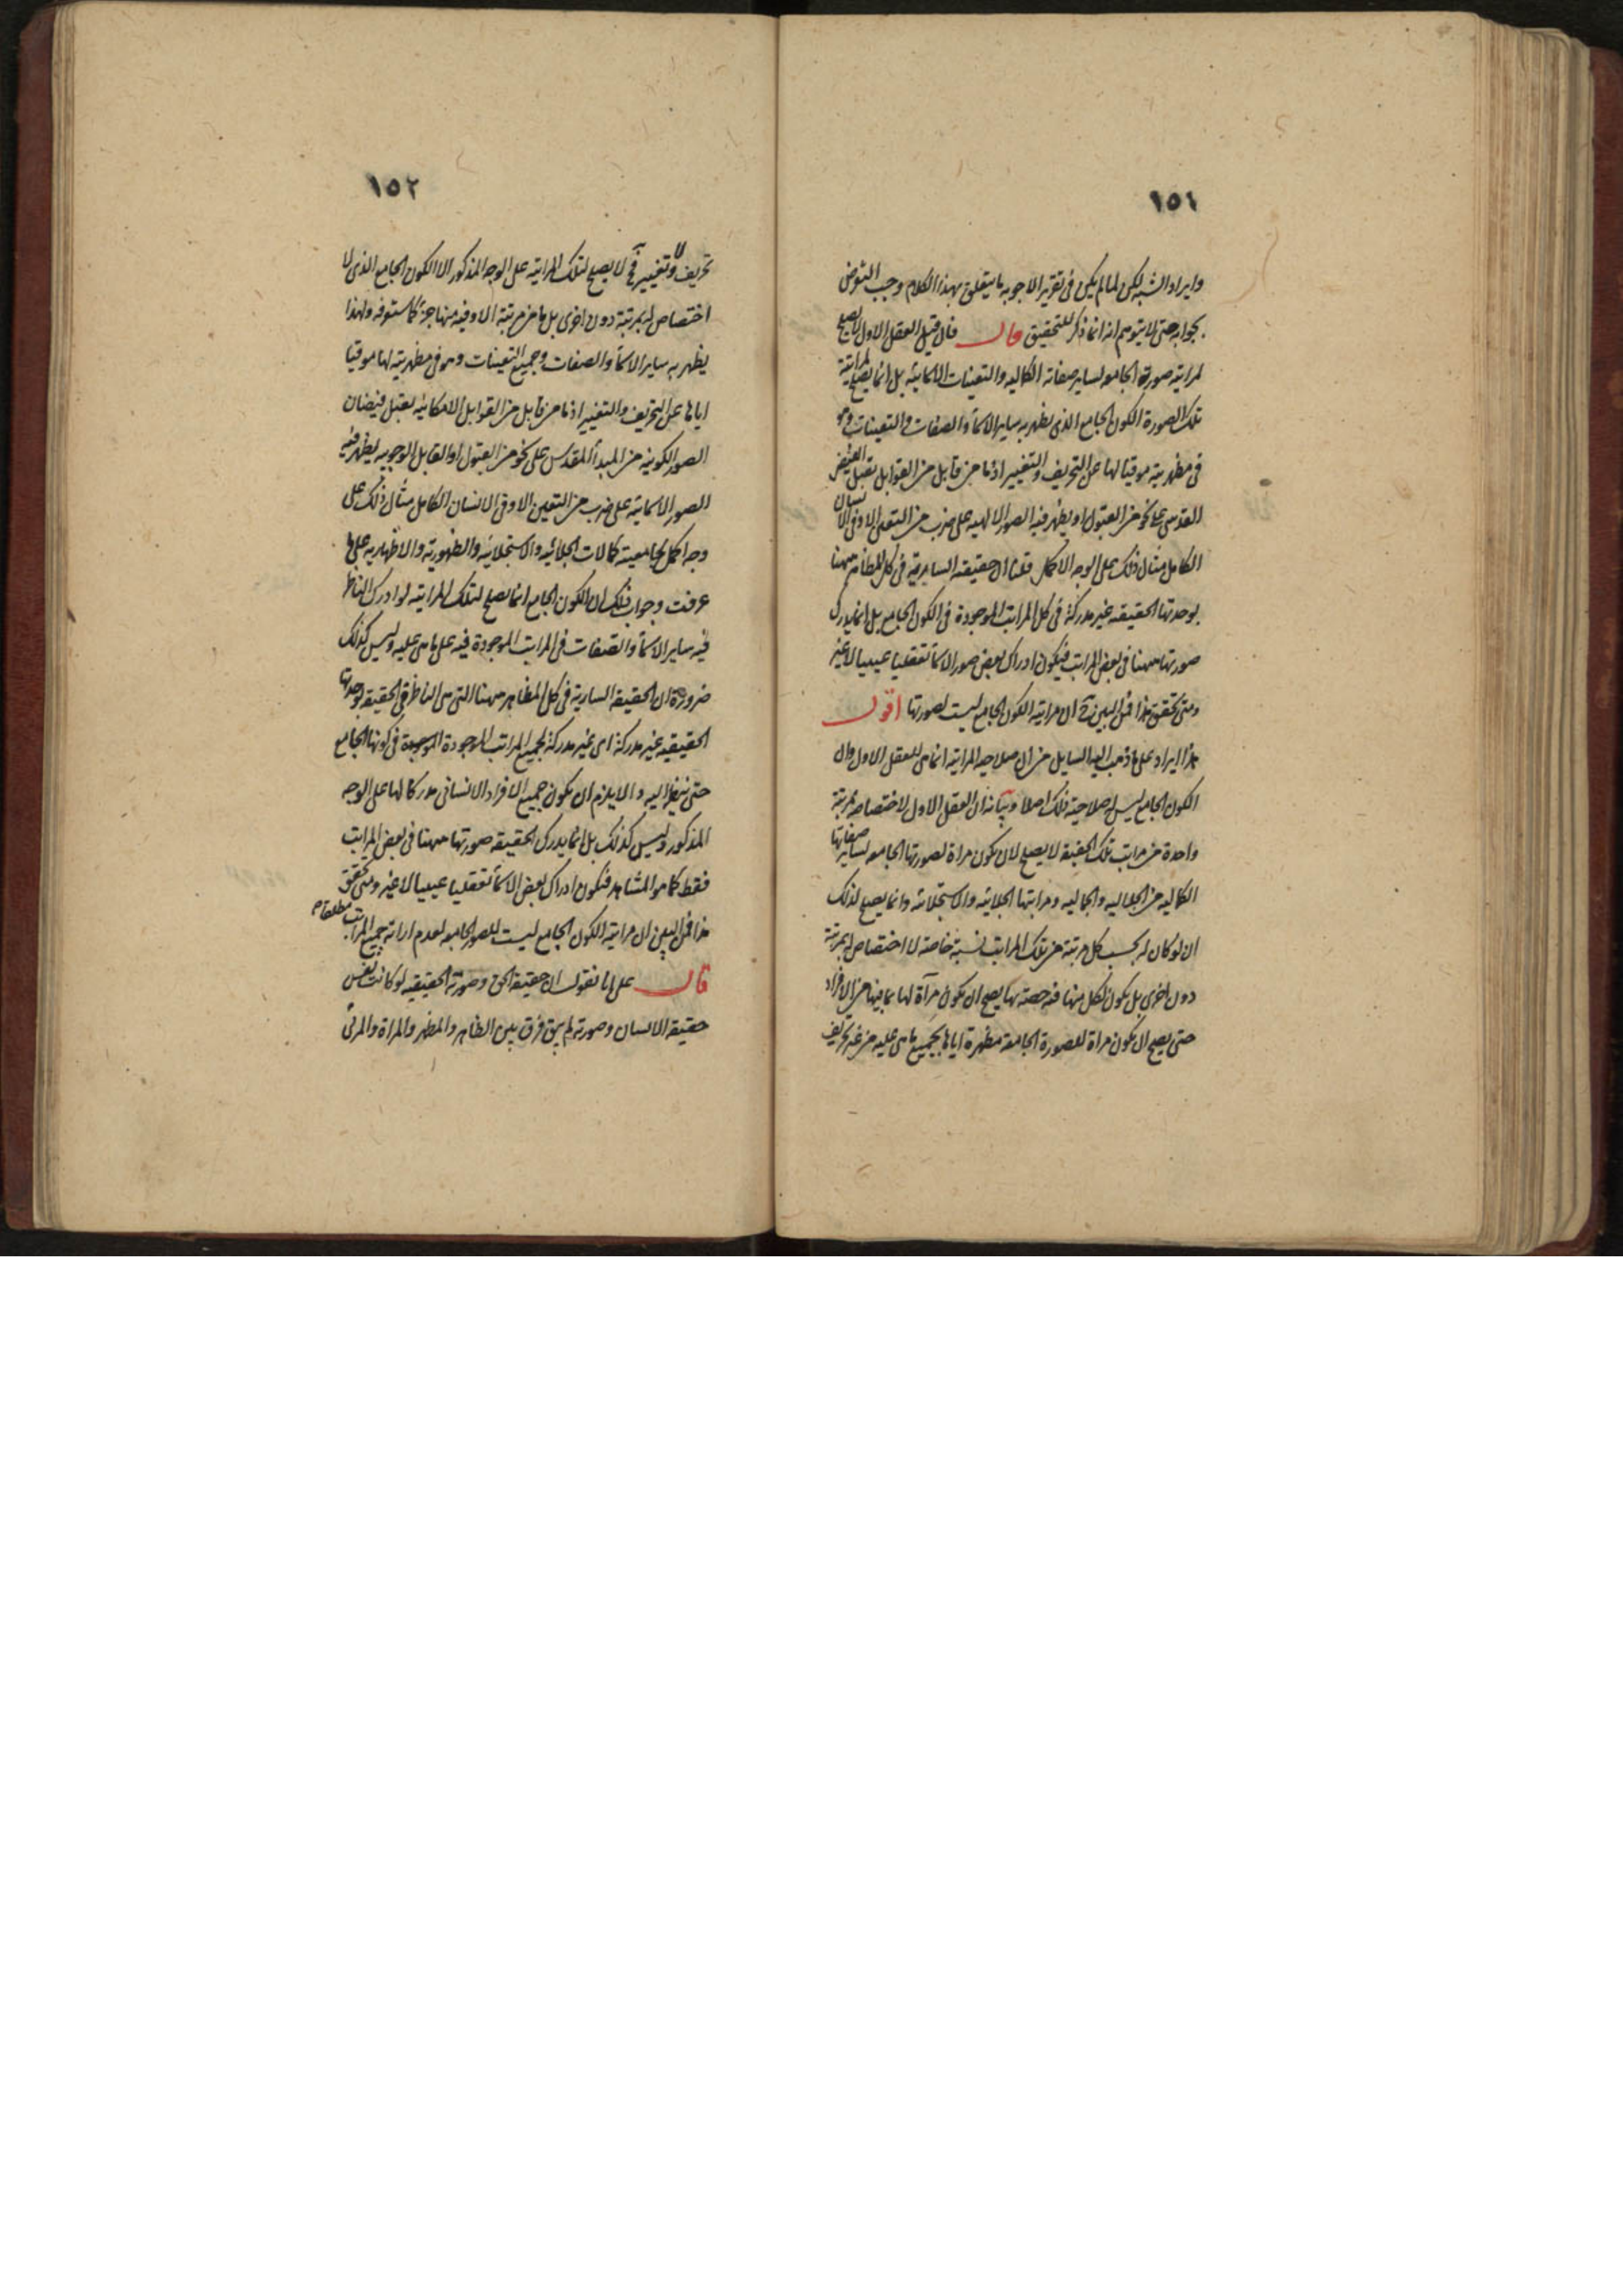 ١٥١
وايراد الشبه لكن لما لم يكن فى تقرير الاجوبه ما يتعلق بهذا الكلام وجب التعرض
بجوابه حتى لا يتوهم انه انما ذكر للتحقيق قال فان قيل العقل الاول لا يصلح
لمراتيه صورته الجامعه لساير صفاته الكماليه والتعينات الاسمائيه بل انما يصلح لمراتية
تلك الصورة الكون الجامع الذى يظهر به ساير الاسماء والصفات والتعينات وهو
فى مظهريته موقيا لها عن التحريف والتغيير اذ ما من قابل من القوابل يقبل الفيض
القدسى على نحو من القبول او يظهر فيه الصور الالهيه على ضرب من التعين الا وفى الانسان
الكامل مثال ذلك على الوجه الاكمل قلنا ان حقيقته السايرية فى كل المظاهر ههنا
بوحدتها الحقيقيه غير مدركة فى كل المراتب الموجودة فى الكون الجامع بل انما يدرك
صورتها ههنا فى بعض المراتب فيكون ادراك بعض صور الاسماء تعقليا غيبيا لا غير
ومتى تحقق هذا فمن البين ان مراتيه الكون الجامع ليست لصورتها اقول
هذا ايراد على ما ذهب اليه السايل من ان صلاحيه المراتيه انما هى للعقل الاول وان
الكون الجامع ليس له صلاحية ذلك اصلا وبيانه ان العقل الاول لاختصاصه بمرتبة
واحدة من مراتب تلك الحقيقه لا يصلح لان يكون مراة لصورتها الجامعه لساير صفاتها
الكماليه من الجلاليه والجماليه ومراتبها الجلائيه والاستجلائه وانما يصلح لذلك
ان لو كان له بحسب كل مرتبة من تلك المراتب نسبة خاصة لا اختصاص له بمرتبة
دون اخرى بل يكون لكل منها فيه حصة بها يصح ان يكون مرآة لها بما فيها من الافراد
حتى يصح ان يكون مراة للصورة الجامعة مظهرة اياها بجميع ما هى عليه من غير تحريف
١٥٢
تحريف ولا تغيير فح لا يصلح لتلك المراتيه على الوجه المذكور الا الكون الجامع الذى لا
اختصاص له بمرتبة دون اخرى بل ما من مرتبة الا وفيه منها جزء كما ستعرفه ولهذا
يظهر به ساير الاسماء والصفات وجميع التعينات وهو فى مظهريته لها موقيا
اياها عن التحريف والتغيير اذ ما من قابل من القوابل الامكانيه يقبل فيضان
الصور الكونيه من المبدأ المقدس على نحو من القبول او القابل الوجوبيه يظهر فيه
الصور الاسمائيه على ضرب من التعين الا وفى الانسان الكامل مثال ذلك على
وجه اكمل لجامعيته كمالات الجلائيه والاستجلائيه والظهورية والاظهاريه على ما
عرفت وجواب ذلك ان الكون الجامع انما يصلح لتلك المراتيه لو ادرك الناظر
فيه ساير الاسماء والصفات فى المراتب الموجودة فيه على ما هى عليه وليس كذلك
ضرورة ان الحقيقه السارية فى كل المظاهر ههنا التى هى الناظر فى الحقيقه بوحدتها
الحقيقيه غير مدركة اى غير مدركة لجميع المراتب الموجودة فى كونها الجامع
حتى ينظر اليه والا يلزم ان يكون جميع الافراد الانسانى مدركا لها على الوجه
المذكور وليس كذلك بل انما يدرك الحقيقه صورتها ههنا فى بعض المراتب
فقط كما هو المشاهد فيكون ادراك بعض الاسماء تعقليا غيبيا لا غير ومتى تحقق
هذا فمن البين ان مراتيه الكون الجامع ليست للصور الجامعه لعدم اراته جميع المراتب مطلقا
قال على انا نقول ان حقيقة الحق وصورته الحقيقيه لو كانت نفس
حقيقة الانسان وصورته لم يبق فرق بين الظاهر والمظهر والمراة والمرئى